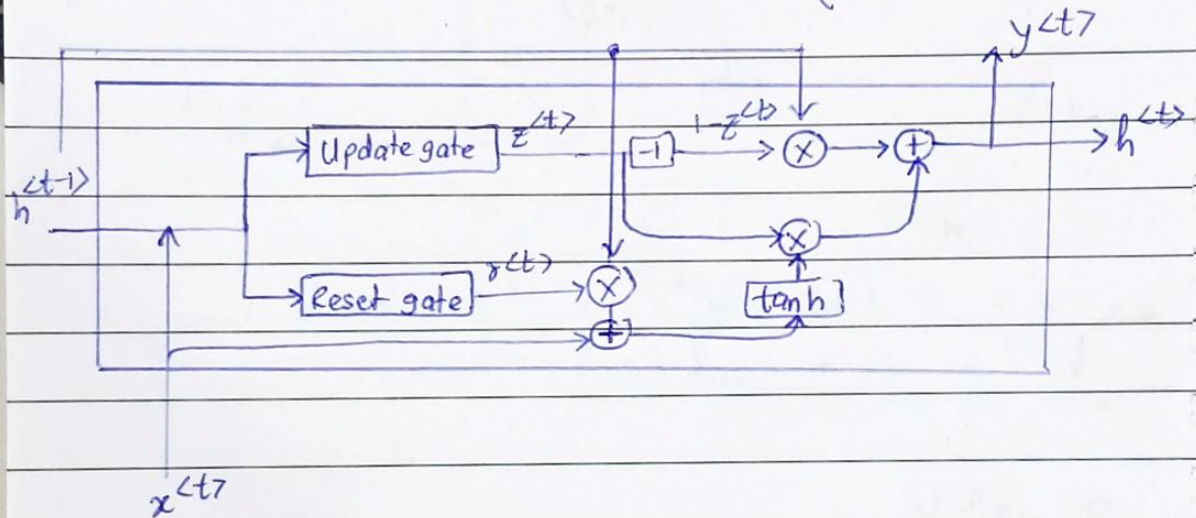 y<t>
Update gate
z<t>
-1
1-z<t>
×
+
h<t>
h<t-1>
×
Reset gate
r<t>
×
tanh
+
x<t>